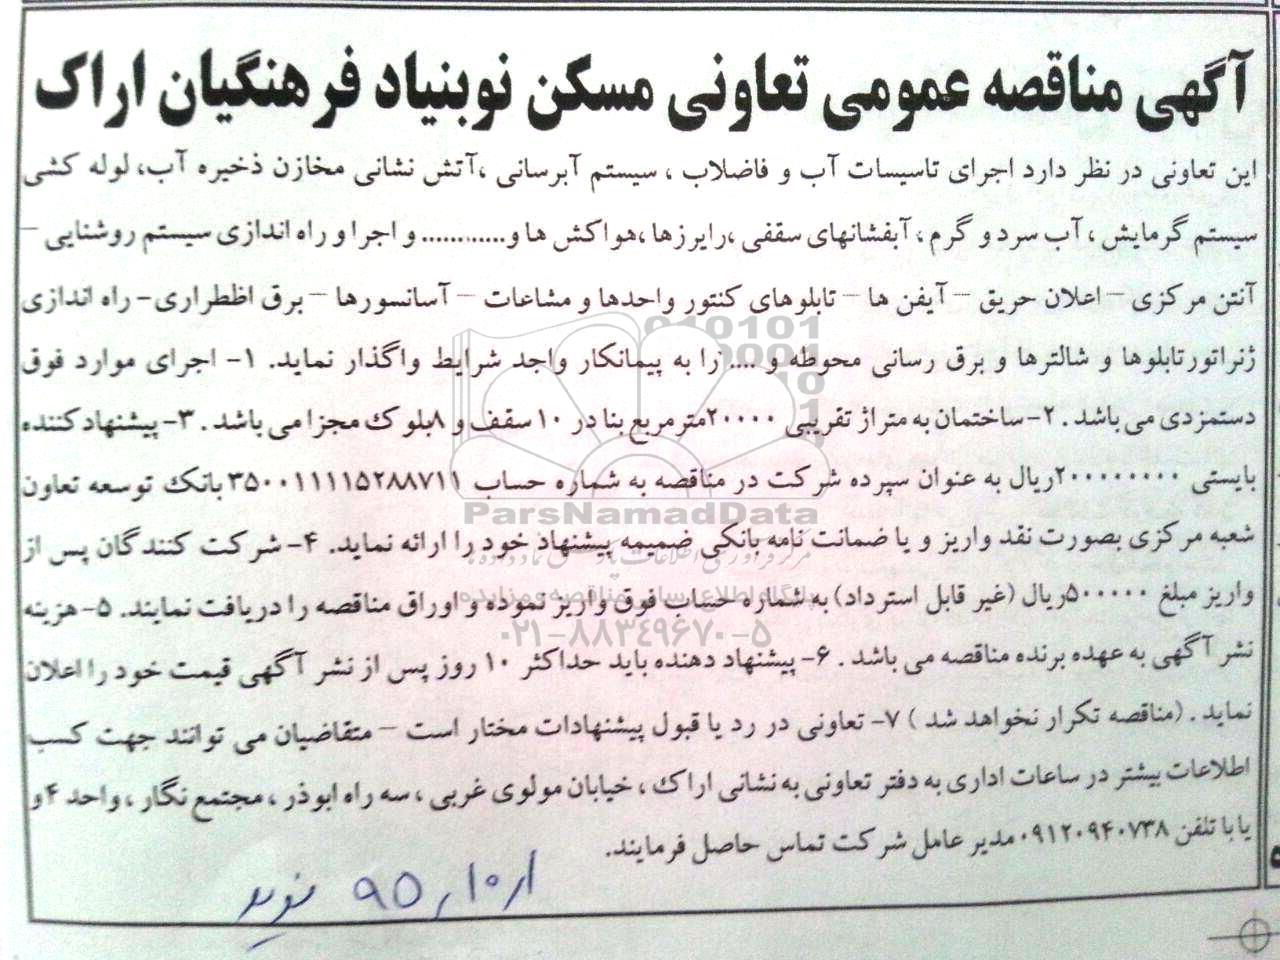 آگهی مناقصه عمومی تعاونی مسکن نوبنیاد فرهنگیان اراک
این تعاونی در نظر دارد اجرای تاسیسات آب و فاضلاب ، سیستم آبرسانی ،آتش نشانی مخازن ذخیره آب، لوله کشی
سیستم گرمایش ، آب سرد و گرم ، آبفشانهای سقفی ،رایزرها ،هواکش ها و............ و اجرا و راه اندازی سیستم روشنایی –
آنتن مرکزی – اعلان حریق – آیفن ها – تابلوهای کنتور واحدها و مشاعات – آسانسورها – برق اظطراری- راه اندازی
ژنراتورتابلوها و شالترها و برق رسانی محوطه و .... را به پیمانکار واجد شرایط واگذار نماید. ۱- اجرای موارد فوق
دستمزدی می باشد . ۲-ساختمان به متراژ تقریبی ۲۰۰۰۰مترمربع بنا در ۱۰ سقف و ۸بلوک مجزا می باشد . ۳- پیشنهادکننده
بایستی ۲۰۰۰۰۰۰۰۰ریال به عنوان سپرده شرکت در مناقصه به شماره حساب ۳۵۰۰۱۱۱۱۱۵۲۸۸۷۱۱ بانک توسعه تعاون
شعبه مرکزی بصورت نقد واریز و یا ضمانت نامه بانکی ضمیمه پیشنهاد خود را ارائه نماید. ۴- شرکت کنندگان پس از
واریز مبلغ ۵۰۰۰۰۰ریال (غیر قابل استرداد) به شماره حساب فوق واریز نموده و اوراق مناقصه را دریافت نمایند. ۵- هزینه
نشر آگهی به عهده برنده مناقصه می باشد . ۶- پیشنهاد دهنده باید حداکثر ۱۰ روز پس از نشر آگهی قیمت خود را اعلان
نماید . (مناقصه تکرار نخواهد شد ) ۷- تعاونی در رد یا قبول پیشنهادات مختار است – متقاضیان می توانند جهت کسب
اطلاعات بیشتر در ساعات اداری به دفتر تعاونی به نشانی اراک ، خیابان مولوی غربی ، سه راه ابوذر ، مجتمع نگار ، واحد ۴ و
یا با تلفن ۰۹۱۲۰۹۴۰۷۳۸مدیر عامل شرکت تماس حاصل فرمایند.
ParsNamadData
مرکز فرآوری اطلاعات پارس نماد داده ها
پایگاه اطلاع رسانی مناقصه و مزایده
۰۲۱-۸۸۳۴۹۶۷۰-۵